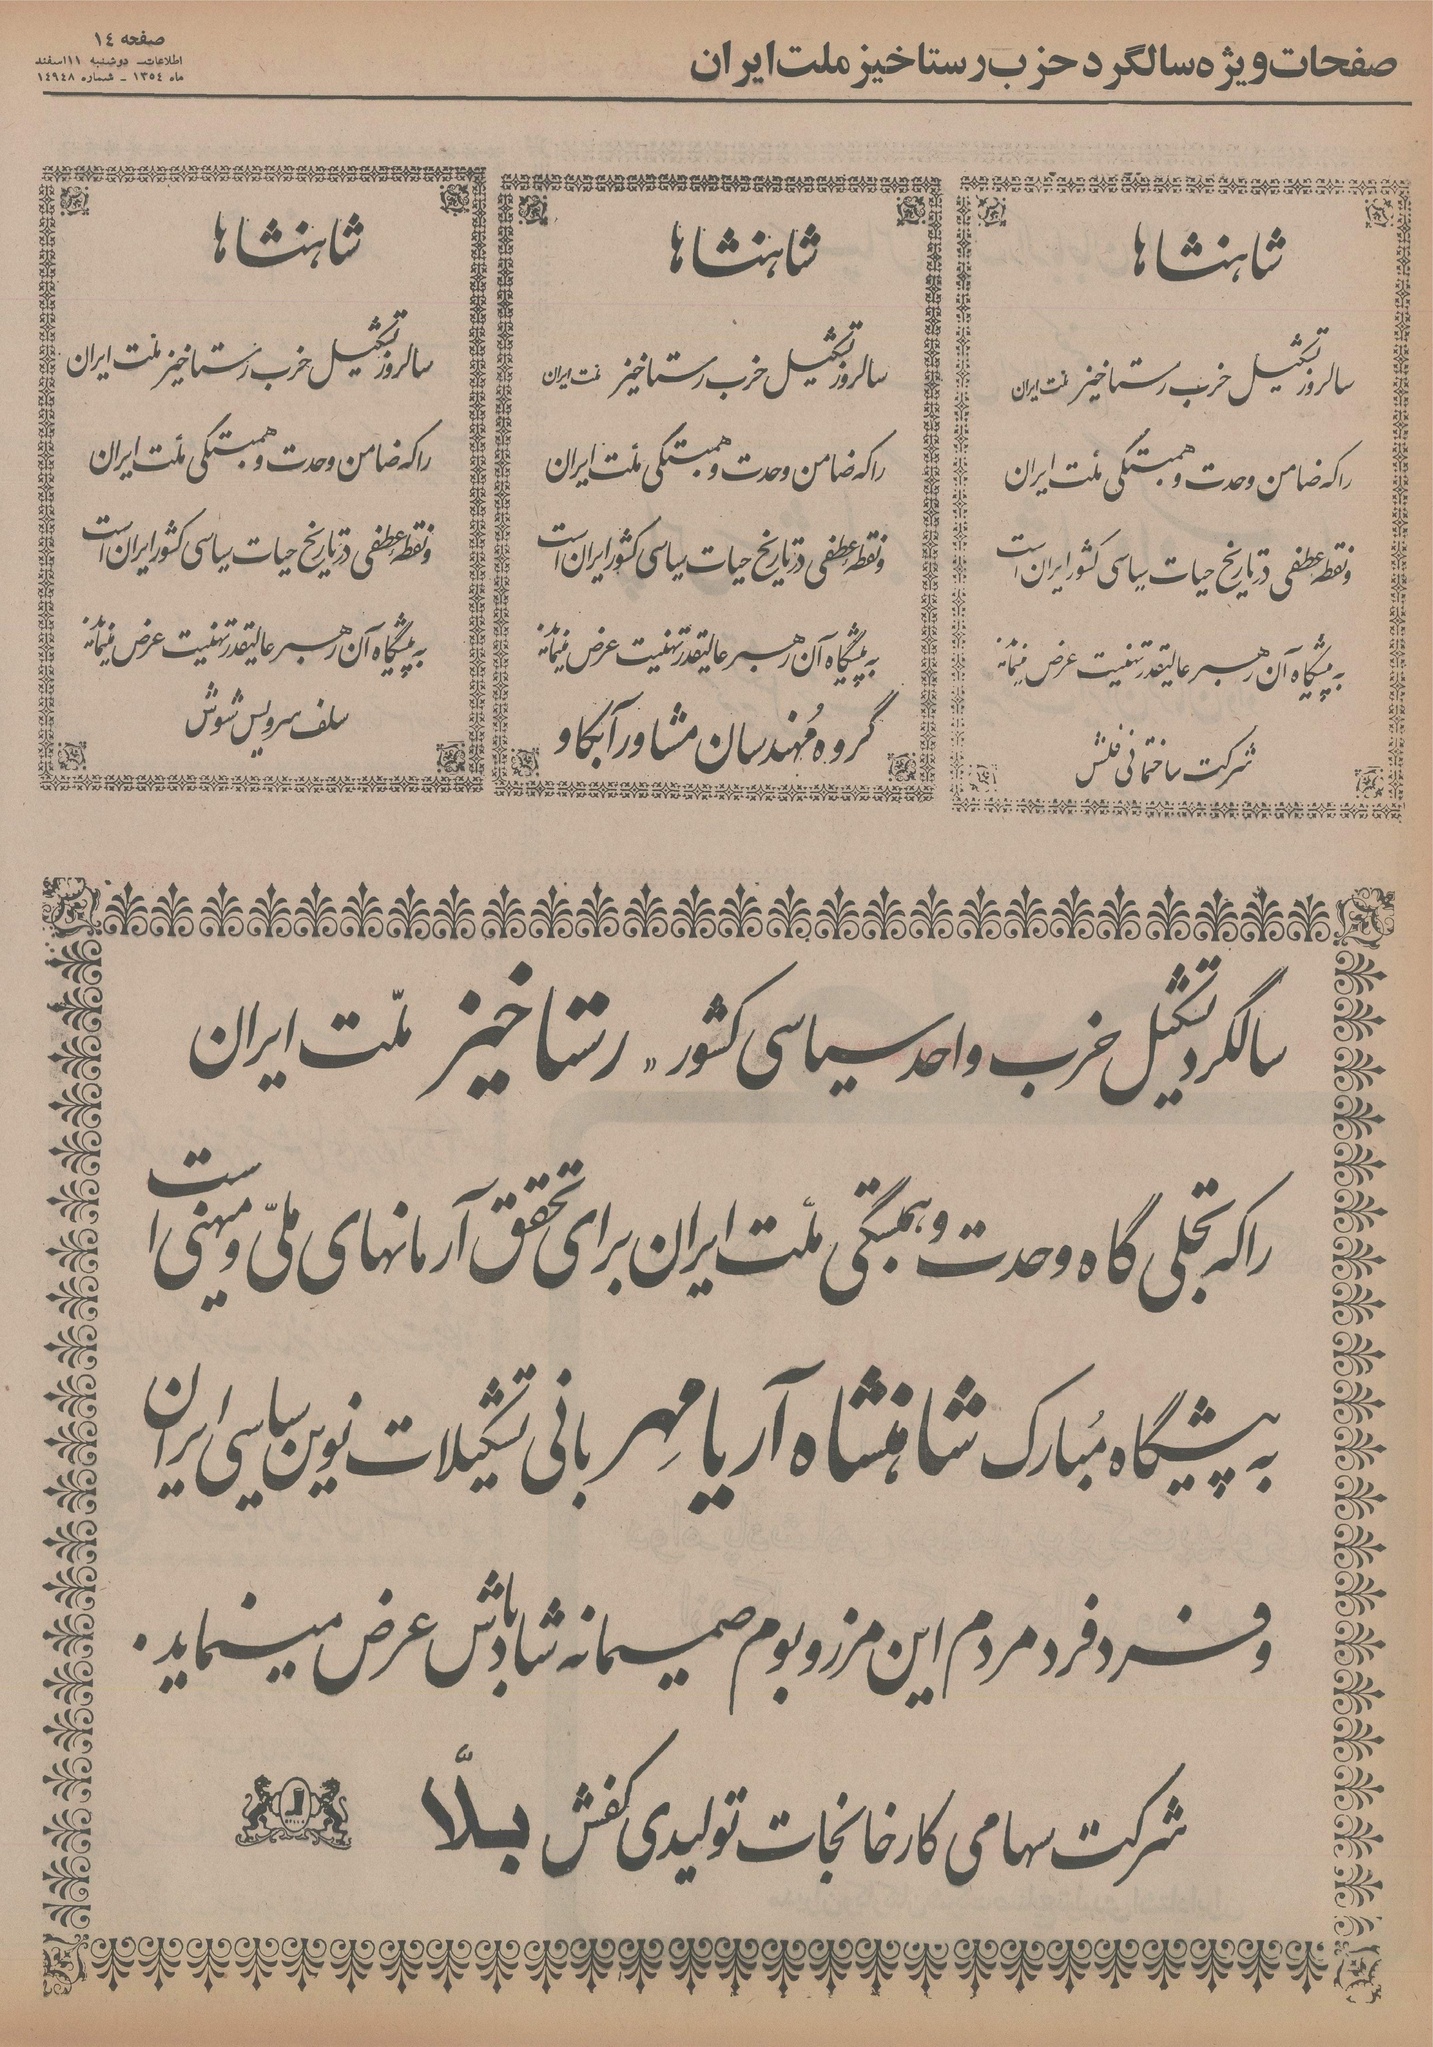 صفحات ویژه سالگرد حزب رستاخیز ملت ایران
صفحه ۱٤
اطلاعات ـ دوشنبه ۱۱ اسفند
ماه ۱۳٥٤ - شماره ۱٤۹٤۸
شاهنشاها
سالروز تشکیل حزب رستاخیز ملت ایران
را که ضامن وحدت و همبستگی ملت ایران
و نقطه عطفی در تاریخ حیات سیاسی کشور ایران است
به پیشگاه آن رهبر عالیقدر تهنیت عرض مینماید
شرکت ساختمانی فلش
شاهنشاها
سالروز تشکیل حزب رستاخیز ملت ایران
را که ضامن وحدت و همبستگی ملت ایران
و نقطه عطفی در تاریخ حیات سیاسی کشور ایران است
به پیشگاه آن رهبر عالیقدر تهنیت عرض مینماید
گروه مُهندسان مشاور آبکاو
شاهنشاها
سالروز تشکیل حزب رستاخیز ملت ایران
را که ضامن وحدت و همبستگی ملت ایران
و نقطه عطفی در تاریخ حیات سیاسی کشور ایران است
به پیشگاه آن رهبر عالیقدر تهنیت عرض مینماید
سلف سرویس شوش
سالگرد تشکیل حزب واحد سیاسی کشور « رستاخیز ملّت ایران
را که تجلی گاه وحدت و همبستگی ملّت ایران برای تحقق آرمانهای ملّی و میهنی است
به پیشگاه مُبارک شاهنشاه آریامِهر بانی تشکیلات نوین سیاسی ایران
و فرد فرد مردم این مرز و بوم صمیمانه شادباش عرض مینماید.
شرکت سهامی کارخانجات تولیدی کفش بلّا